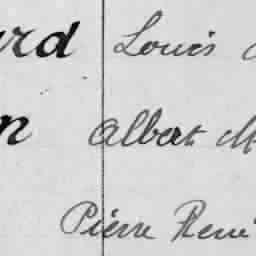 Louis
Albert
Pierre René